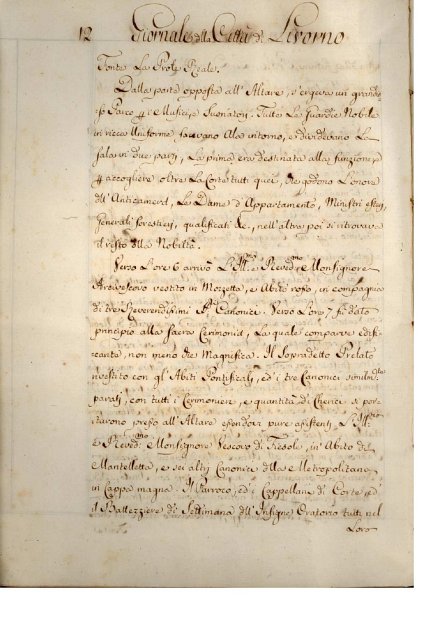 12 Giornale della Città di Livorno
Fonte La Prole Reale.
Dalla parte opposta all' Altare, s'ergeva un grandis-
so Palco per i Musici, e Suonatori. Tutte Le Guardie Nobili
in ricca Uniforme facevano Ala intorno, e dividevano La
sala in due parti, La prima era destinata alla funzione, e
per accogliere oltre La Corte tutti quei, che godono L'onore
dell' Anticamera, Le Dame d'Appartamento, Ministri esteri,
Generali forestieri, qualificati &c., nell'altra poi si ritrovava
il resto della Nobiltà.
Verso L'ore 6 arrivò L'Ill.mo e Reved.mo Monsignore
Arcivescovo vestito in Mozzetta, e Abito rosso, in compagnia
di tre Reverendissimi Canonici. Verso L'ore 7 fu dato
principio alla sacra Cerimonia, La quale comparve edifi-
cante, non meno che Magnifica. Il Sopradetto Prelato
rivestito con gl'Abiti Pontificali, ed i tre Canonici
parati, con tutti i Cerimonieri, e quantità di Cherici si por-
tarono presso all'Altare essendovi pure assistenti, L'Ill.mo
e Reved.mo Monsignore Vescovo di Fiesole, in Abito di
Mantelletta, e sei altri Canonici della Metropolitana
in Cappa magna. Il Parroco, ed i Cappellani di Corte, ed
il Battezziere di Settimana dell' Insigne Oratorio tutti nel
Loro